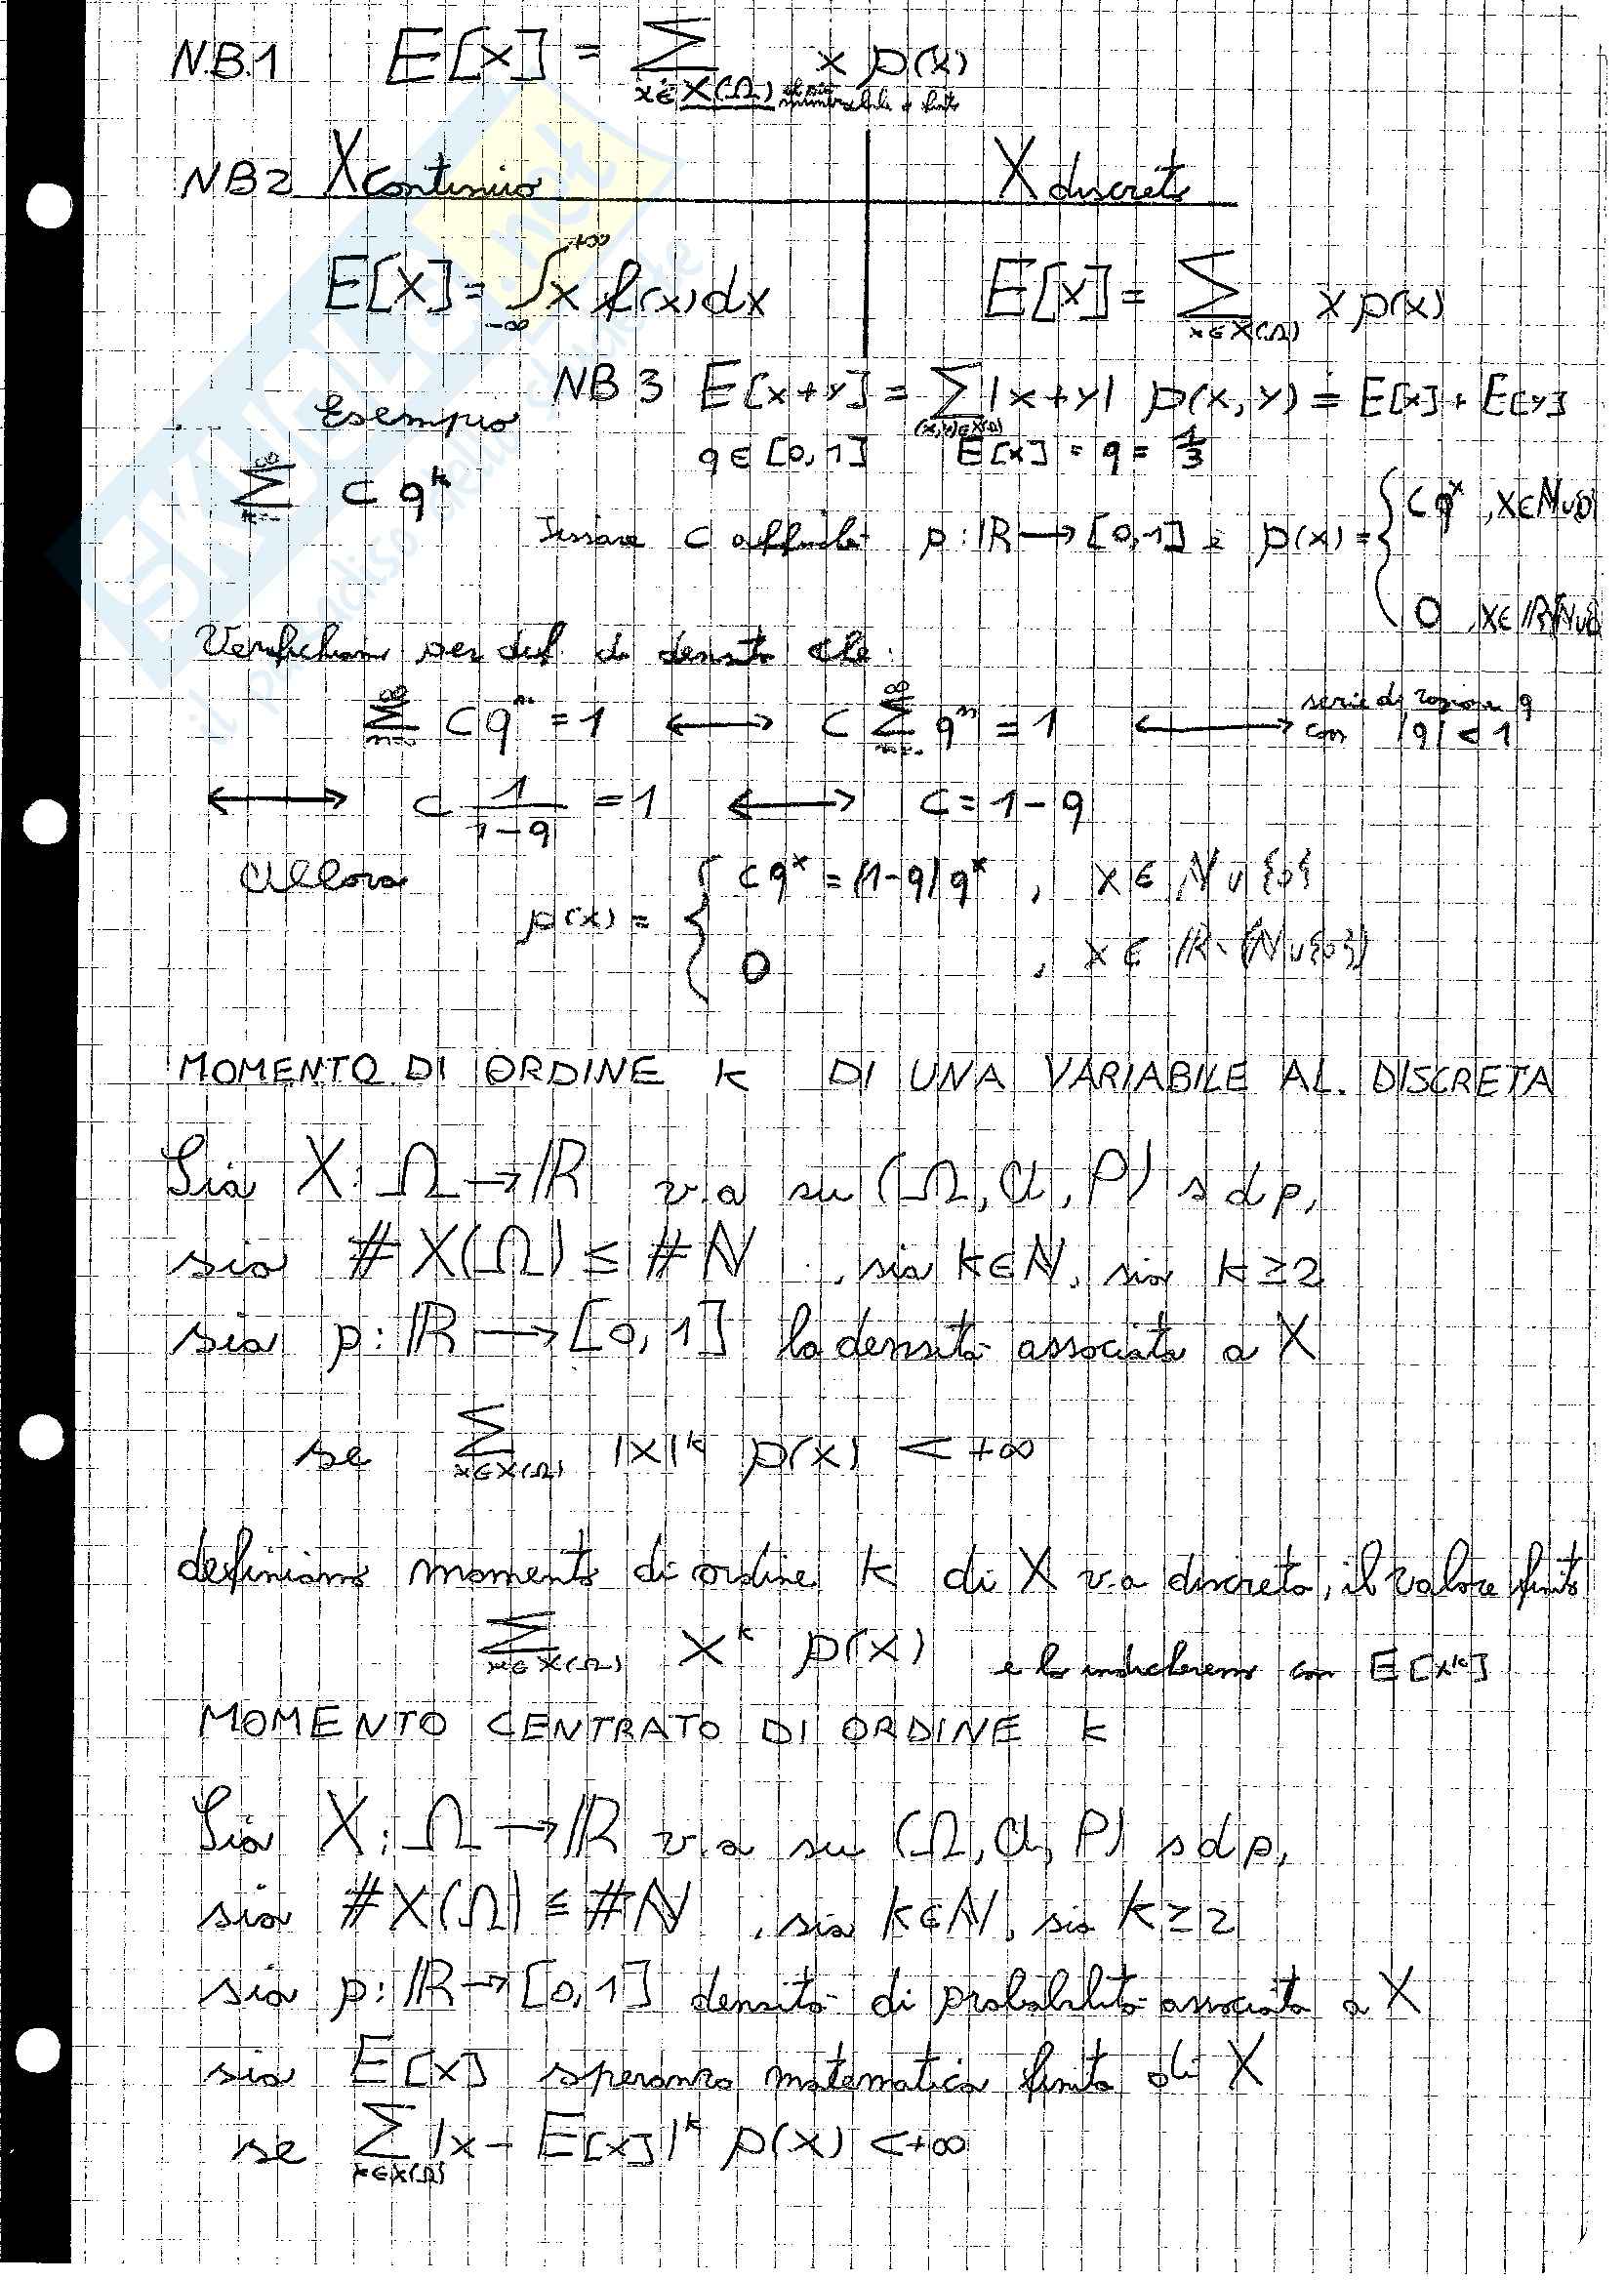 N.B.1 E[X] = ∑ x p(x)
x ∈ X(Ω) numerabile o finito
NB2 X continuo X discreto
E[X] = ∫_{-∞}^{+∞} x f(x) dx E[X] = ∑_{x∈X(Ω)} x p(x)
NB 3 E[X+Y] = ∑_{(x,y)∈X(Ω)} |x+y| p(x,y) = E[X] + E[Y]
Esempio
q ∈ [0,1] E[X] = q = 1/3
∑^∞ C q^k
C affinché p: ℝ → [0,1] è p(x) = { C q^x , x ∈ ℕ∪0
0 , x ∈ ℝ\ℕ∪0
Verifichiamo per def. di densità che:
∑^∞ C q^n = 1 ⟷ C ∑^∞ q^n = 1 ⟷ serie di ragione q con |q| < 1
⟷ C 1/(1-q) = 1 ⟷ C = 1 - q
Allora
p(x) = { C q^x = (1-q) q^x , x ∈ ℕ ∪ {0}
0 , x ∈ ℝ \ (ℕ ∪ {0})
MOMENTO DI ORDINE K DI UNA VARIABILE AL. DISCRETA
Sia X: Ω → ℝ v.a su (Ω, a, P) s d p,
sia # X(Ω) ≤ # ℕ , sia k ∈ ℕ, sia k ≥ 2
sia p: ℝ → [0,1] la densità associata a X
se ∑_{x∈X(Ω)} |x|^k p(x) < +∞
definiamo momento di ordine k di X v.a discreta, il valore finito
∑_{x∈X(Ω)} x^k p(x) e lo indicheremo con E[X^k]
MOMENTO CENTRATO DI ORDINE K
Sia X: Ω → ℝ v.a su (Ω, a, P) s d p,
sia # X(Ω) ≤ # ℕ , sia k ∈ ℕ, sia k ≥ 2
sia p: ℝ → [0,1] densità di probabilità associata a X
sia E[X] speranza matematica finita di X
se ∑_{x∈X(Ω)} |x - E[X]|^k p(x) < +∞